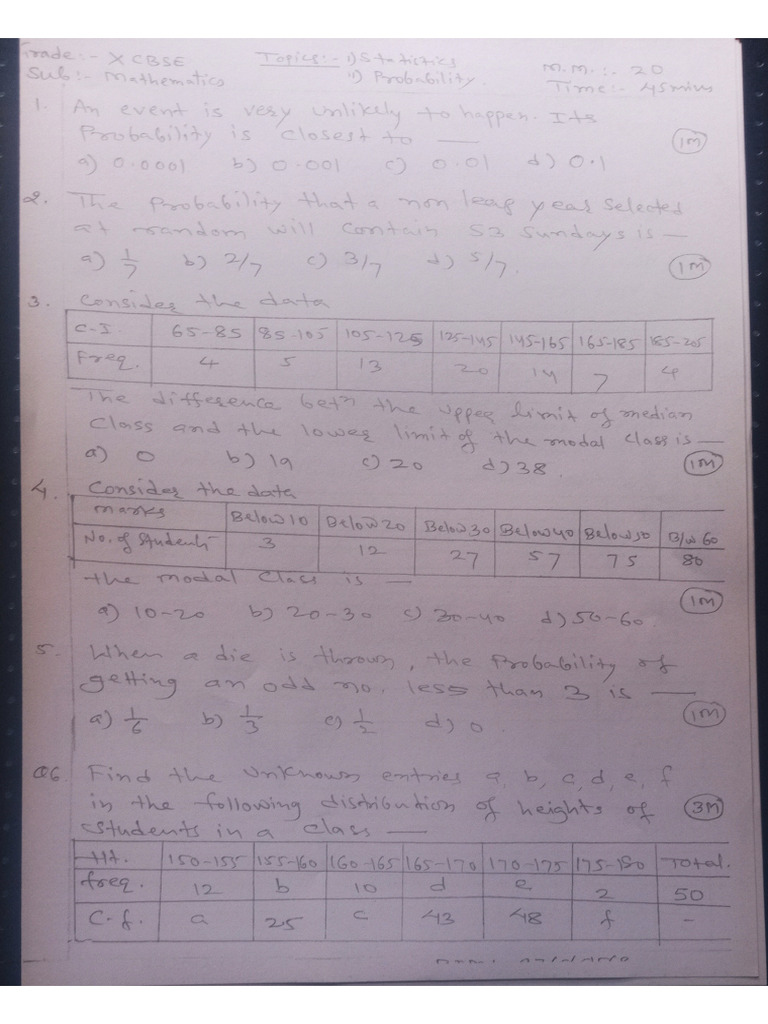 Grade:- X CBSE Topics:- i) Statistics M.M.:- 20
Sub:- Mathematics ii) Probability. Time:- 45 mins
1. An event is very unlikely to happen. Its
Probability is closest to —
(1M)
a) 0.0001 b) 0.001 c) 0.01 d) 0.1
2. The Probability that a non leap year selected
at random will contain 53 sundays is —
a) 1/7 b) 2/7 c) 3/7 d) 5/7. (1M)
3. Consider the data
C.I. 65-85 85-105 105-125 125-145 145-165 165-185 185-205
Freq. 4 5 13 20 14 7 4
The difference betn the upper limit of median
Class and the lower limit of the modal class is —
a) 0 b) 19 c) 20 d) 38. (1M)
4. Consider the data
Marks Below 10 Below 20 Below 30 Below 40 Below 50 B/w 60
No. of Students 3 12 27 57 75 80
the modal Class is —
(1M)
a) 10-20 b) 20-30 c) 30-40 d) 50-60.
5. When a die is thrown, the Probability of
getting an odd no. less than 3 is —
a) 1/6 b) 1/3 c) 1/2 d) 0 (1M)
Q6. Find the unknown entries a, b, c, d, e, f
in the following distribution of heights of (3M)
students in a class —
Ht. 150-155 155-160 160-165 165-170 170-175 175-180 Total.
freq. 12 b 10 d e 2 50
C.f. a 25 c 43 48 f -